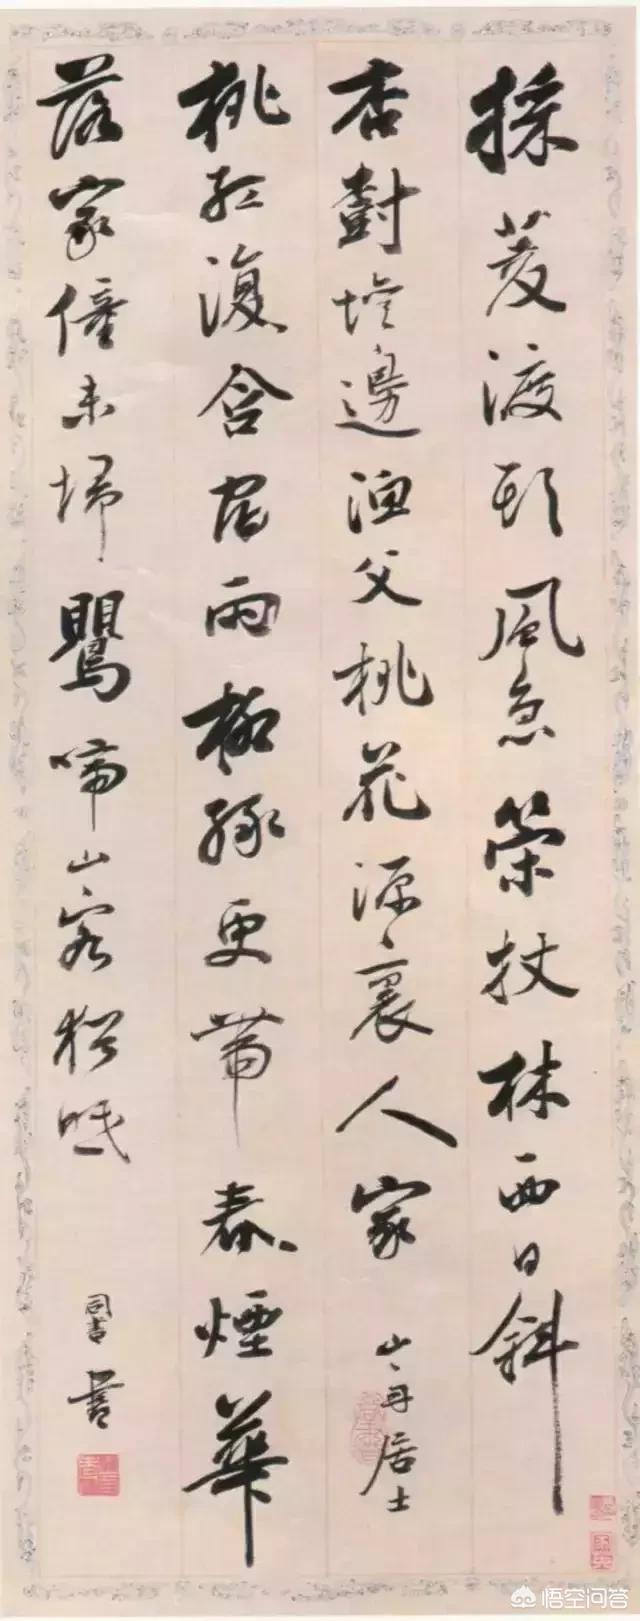 採菱渡頭風急策杖林西日斜
杏樹壇邊漁父桃花源裏人家 山舟居士
桃紅復含宿雨柳綠更帶春煙華
落家僮未埽鸎啼山客猶眠 同書書
悟空问答